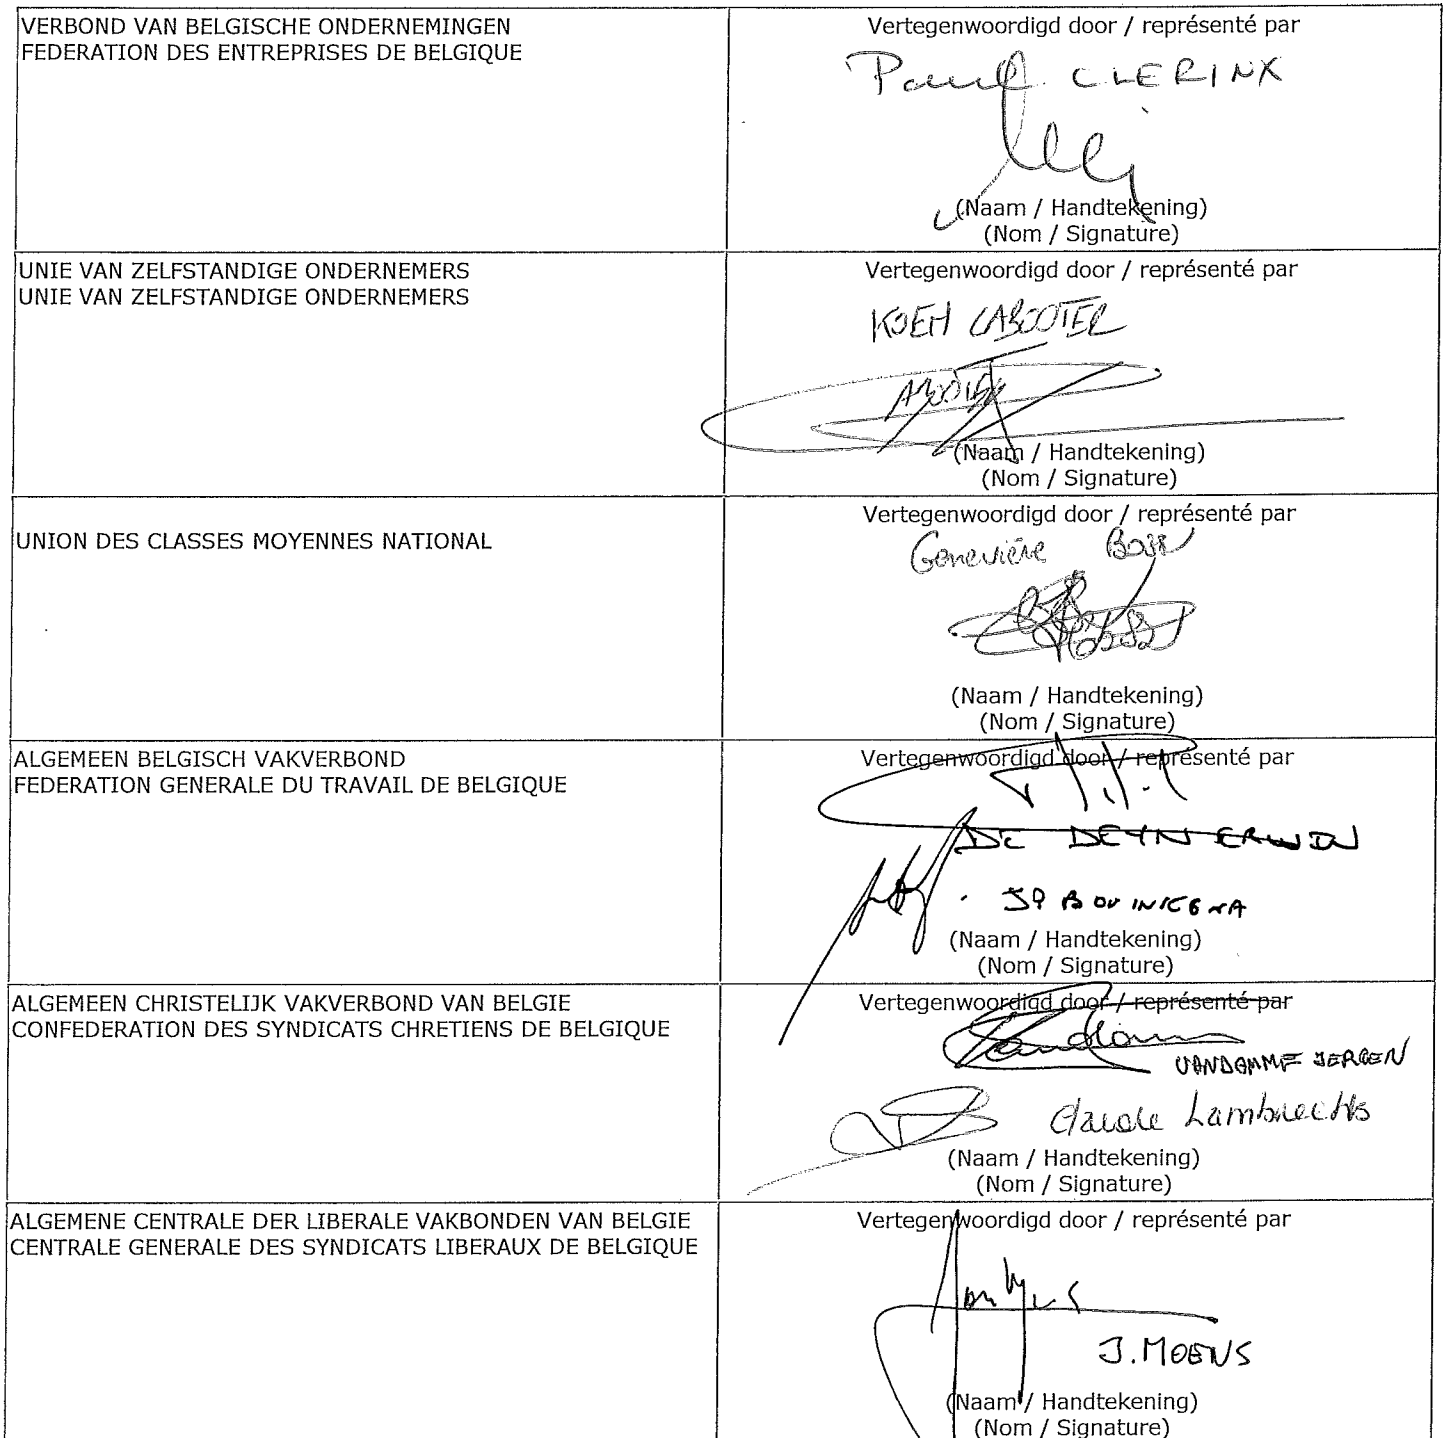 VERBOND VAN BELGISCHE ONDERNEMINGEN
FEDERATION DES ENTREPRISES DE BELGIQUE
Vertegenwoordigd door / représenté par
Paul CLERINX
(Naam / Handtekening)
(Nom / Signature)
UNIE VAN ZELFSTANDIGE ONDERNEMERS
UNIE VAN ZELFSTANDIGE ONDERNEMERS
Vertegenwoordigd door / représenté par
KOEN CABOOTER
(Naam / Handtekening)
(Nom / Signature)
UNION DES CLASSES MOYENNES NATIONAL
Vertegenwoordigd door / représenté par
Geneviève
(Naam / Handtekening)
(Nom / Signature)
ALGEMEEN BELGISCH VAKVERBOND
FEDERATION GENERALE DU TRAVAIL DE BELGIQUE
Vertegenwoordigd door / représenté par
DE DEYN ERWIN
JP
(Naam / Handtekening)
(Nom / Signature)
ALGEMEEN CHRISTELIJK VAKVERBOND VAN BELGIE
CONFEDERATION DES SYNDICATS CHRETIENS DE BELGIQUE
Vertegenwoordigd door / représenté par
VANDAMME JEROEN
Claude Lambrechts
(Naam / Handtekening)
(Nom / Signature)
ALGEMENE CENTRALE DER LIBERALE VAKBONDEN VAN BELGIE
CENTRALE GENERALE DES SYNDICATS LIBERAUX DE BELGIQUE
Vertegenwoordigd door / représenté par
J. MOENS
(Naam / Handtekening)
(Nom / Signature)